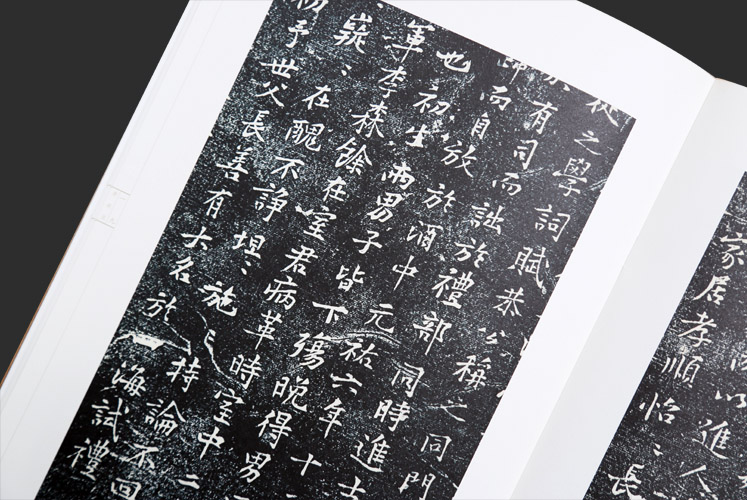 從之學詞賦恭公稱之同門
有司而詘於禮部同時進士
師而自放於酒中元祐六年十
也初生兩男子皆下殤晚得男
葷李森餘在室君病革時室中二
嶷〻在醜不諍〻施之持論不回
予世父長善有大名於海試禮
以進人
家居孝順怡〻長